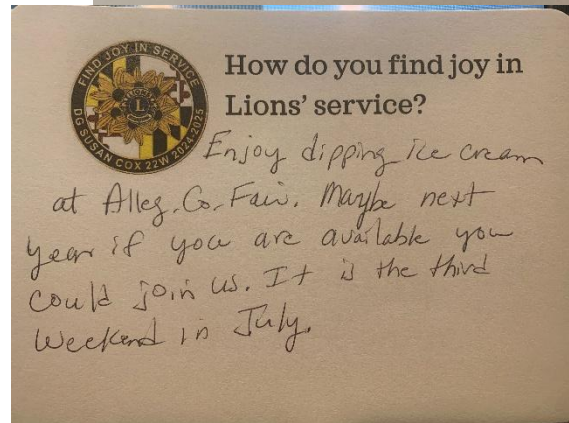 FIND JOY IN SERVICE
DG SUSAN COX 22W 2024-2025
L
How do you find joy in
Lions' service?
Enjoy dipping ice cream
at Alleg. Co. Fair. Maybe next
year if you are available you
could join us. It is the third
weekend in July.